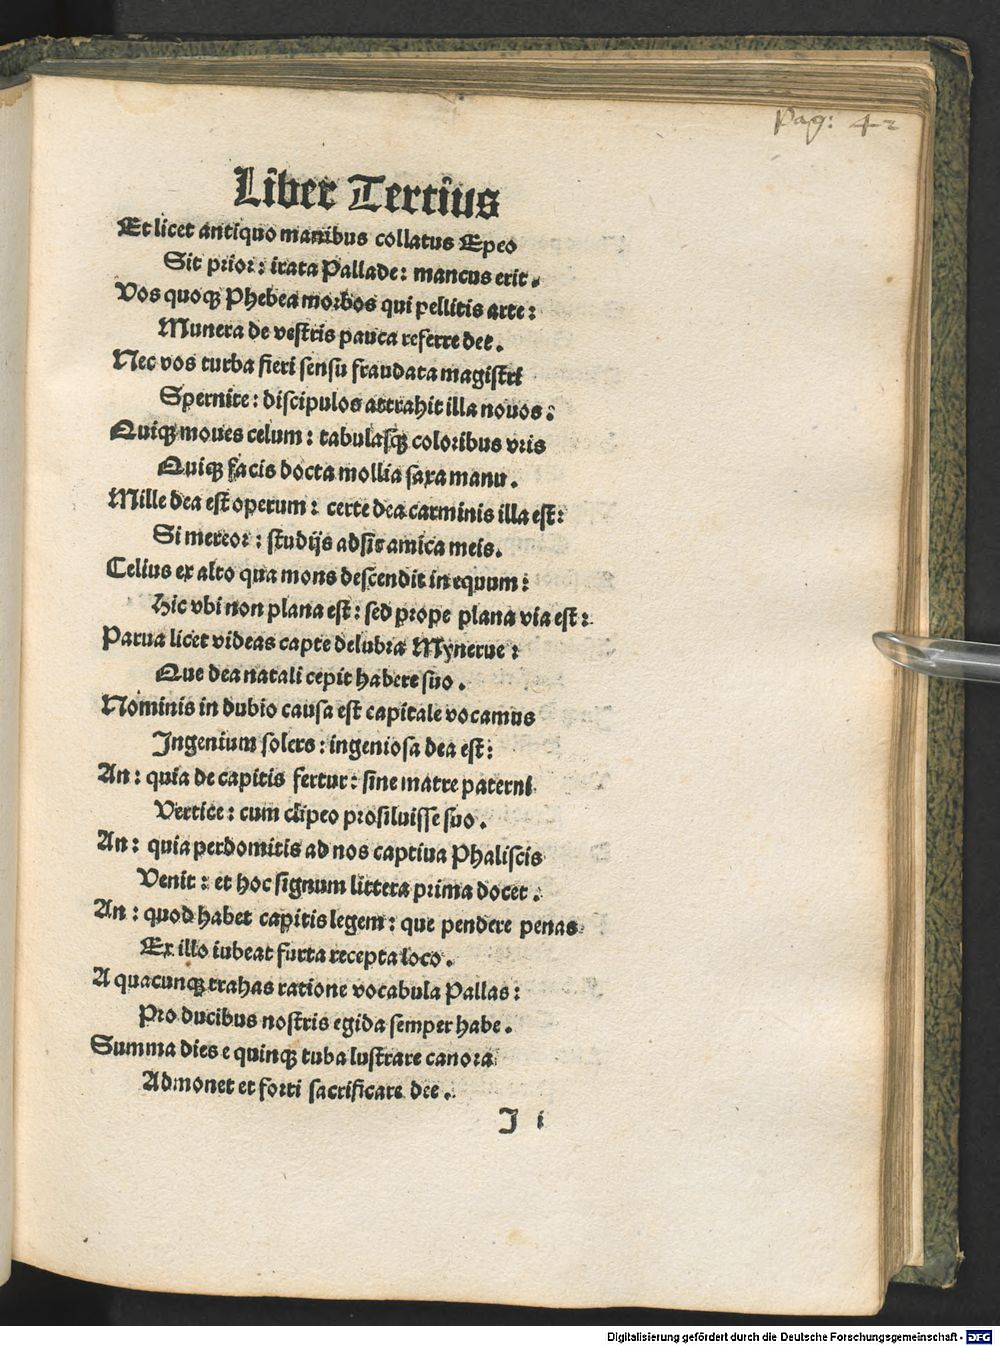 Pag: 42
Liber Tertius
Et licet antiquo manibus collatus Epeo
Sit prior: irata Pallade: mancus erit.
Vos quoqꝫ Phebea morbos qui pellitis arte:
Munera de vestris pauca referre dee.
Nec vos turba fieri sensu fraudata magistri
Spernite: discipulos attrahit illa nouos:
Quiqꝫ moues celum: tabulasqꝫ coloribus vris
Quiqꝫ facis docta mollia saxa manu.
Mille dea est operum: certe dea carminis illa est:
Si mereor: studijs adsit amica meis.
Celius ex alto qua mons descendit in equum:
Hic vbi non plana est: sed prope plana via est:
Parua licet videas capte delubra Mynerue:
Que dea natali cepit habere suo.
Nominis in dubio causa est capitale vocamus
Ingenium solers: ingeniosa dea est:
An: quia de capitis fertur: sine matre paterni
Vertice: cum clipeo prosiluisse suo.
An: quia perdomitis ad nos captiua Phaliscis
Venit: et hoc signum littera prima docet.
An: quod habet capitis legem: que pendere penas
Ex illo iubeat furta recepta loco.
A quacunqꝫ trahas ratione vocabula Pallas:
Pro ducibus nostris egida semper habe.
Summa dies e quinqꝫ tuba lustrare canora
Admonet et forti sacrificare dee.
I i
Digitalisierung gefördert durch die Deutsche Forschungsgemeinschaft - DFG